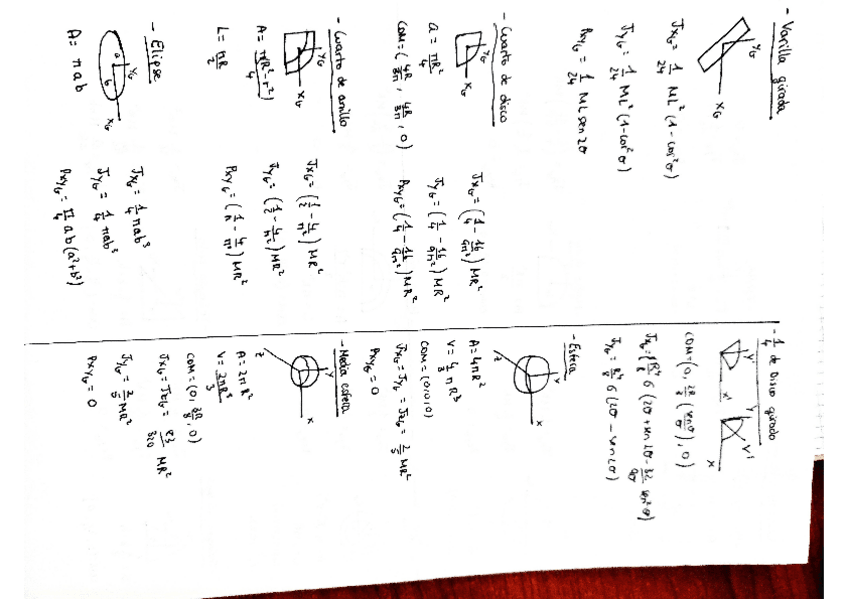 - Varilla girada
y_G
x_G
J_{x_G} = 1/24 ML² (1 - cos²σ)
J_{y_G} = 1/24 ML² (1 - cos²σ)
P_{xy_G} = 1/24 ML sen 2σ
- Cuarto de disco
y_G
x_G
a = πR²/4
COM = (4R/3π, 4R/3π, 0)
J_{x_G} = (1/4 - 16/9π²) MR²
J_{y_G} = (1/4 - 16/9π²) MR²
P_{xy_G} = (1/4 - 16/9π²) MR²
- Cuarto de anillo
y_G
x_G
A = π(R² - r²)/4
L = πR/2
J_{x_G} = (1/2 - 4/π²) MR²
J_{y_G} = (1/2 - 4/π²) MR²
P_{xy_G} = (1/π - 4/π²) MR²
- Elipse
a
b
y_G
x_G
A = πab
J_{x_G} = 1/4 πab³
J_{y_G} = 1/4 πab³
P_{xy_G} = π/4 ab(a² + b²)
- 1/4 de Disco girado
y'
x'
y
y'
x
COM = (0, 2R/3 (senσ/σ), 0)
6 (2σ + sen 2σ - 32/9σ sen²σ)
J_{y_G} = R⁴/8 6 (2σ - sen 2σ)
- Esfera
y
x
z
A = 4πR²
V = 4/3 πR³
COM = (0,0,0)
J_{x_G} = J_{y_G} = J_{z_G} = 2/5 MR²
P_{xy_G} = 0
- Media esfera
y
x
z
A = 2πR²
V = 2πR³/3
COM = (0, 3R/8, 0)
J_{x_G} = J_{z_G} = 83/320 MR²
J_{y_G} = 2/5 MR²
P_{xy_G} = 0